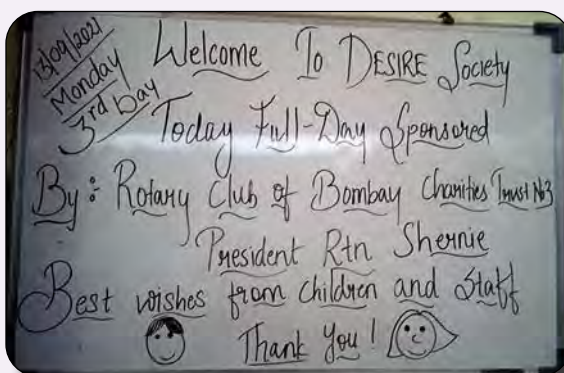 13/09/2021
Monday
3rd Day
Welcome To DESIRE Society
Today Full-Day Sponsored
By: Rotary Club of Bombay Charities Trust No3
President Rtn Shernie
Best wishes from children and Staff
Thank You!